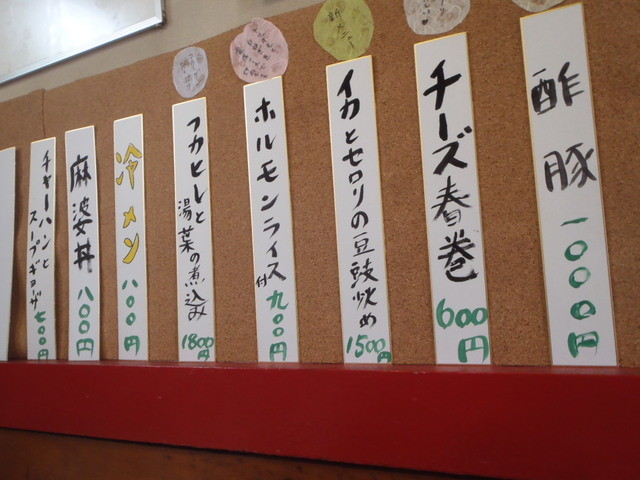 酢豚 一〇〇〇円
チーズ春巻 600円
イカとセロリの豆豉炒め 1500円
ホルモンライス付 九〇〇円
フカヒレと
湯葉の煮込み 1800円
冷メン 八〇〇円
麻婆丼 八〇〇円
チャーハンと
スープギョウザ 七〇〇円